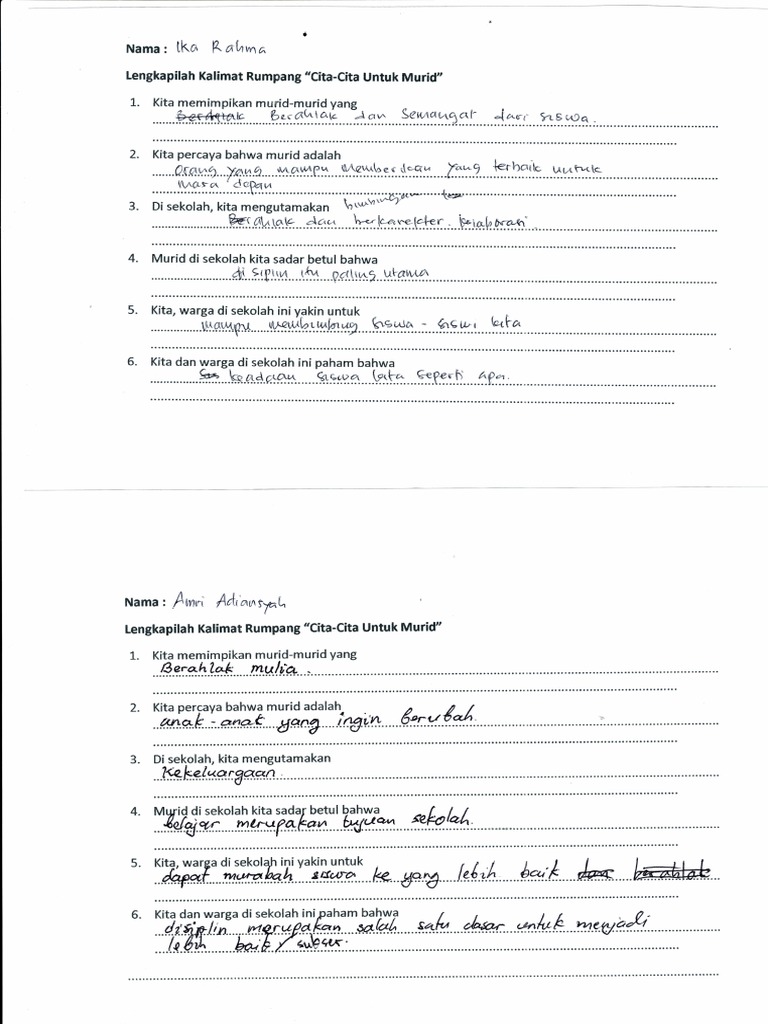 Nama : Ika Rahma
Lengkapilah Kalimat Rumpang "Cita-Cita Untuk Murid"
1. Kita memimpikan murid-murid yang
Berahlak dan Semangat dari siswa.
2. Kita percaya bahwa murid adalah
orang yang mampu memberikan yang terbaik untuk
masa depan
3. Di sekolah, kita mengutamakan bimbingan
Berahlak dan berkarekter. kolaborasi.
4. Murid di sekolah kita sadar betul bahwa
disiplin itu paling utama
5. Kita, warga di sekolah ini yakin untuk
mampu membimbing siswa - siswi kita
6. Kita dan warga di sekolah ini paham bahwa
keadaan siswa kita seperti apa.
Nama : Amri Adiansyah
Lengkapilah Kalimat Rumpang "Cita-Cita Untuk Murid"
1. Kita memimpikan murid-murid yang
Berahlak mulia.
2. Kita percaya bahwa murid adalah
anak-anak yang ingin berubah.
3. Di sekolah, kita mengutamakan
Kekeluargaan.
4. Murid di sekolah kita sadar betul bahwa
belajar merupakan tujuan sekolah.
5. Kita, warga di sekolah ini yakin untuk
dapat murabah siswa ke yang lebih baik dan berahlak
6. Kita dan warga di sekolah ini paham bahwa
disiplin merupakan salah satu dasar untuk menjadi
lebih baik / sukses.